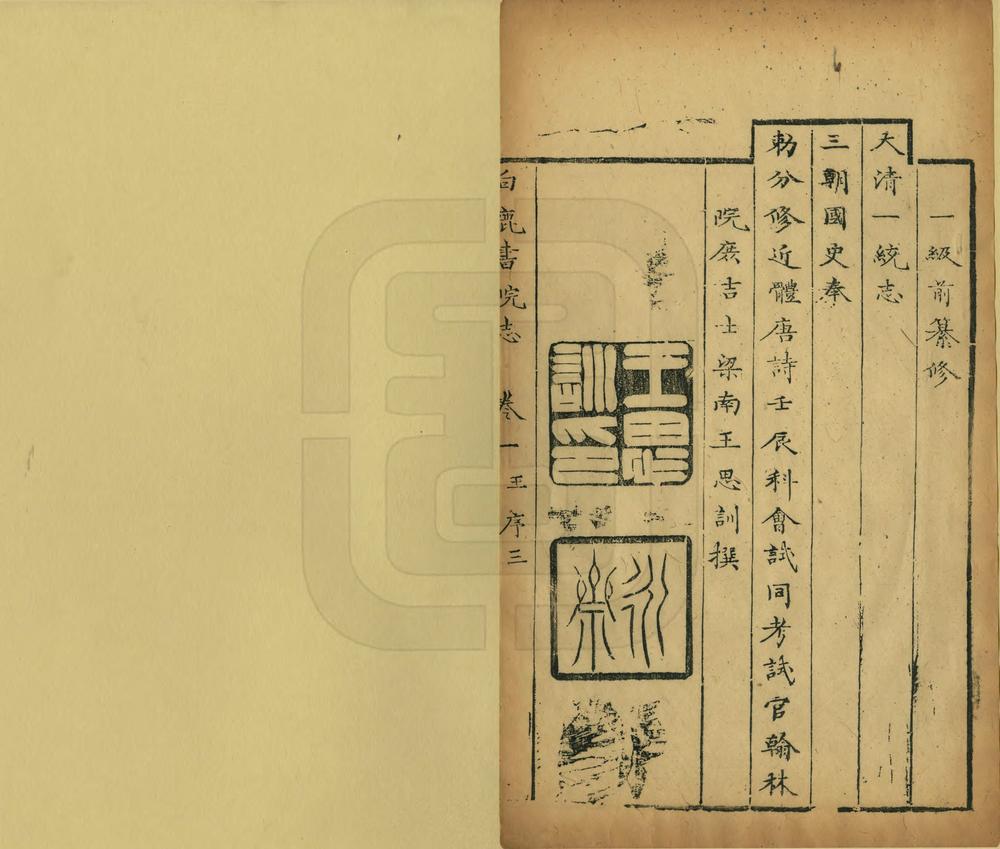 一級前纂修
大清一統志
三朝國史奉
勅分修近體唐詩壬辰科會試同考試官翰林
院庶吉士梁南王思訓撰
王思訓印
永齋
白鹿書院志 卷一 王序 三